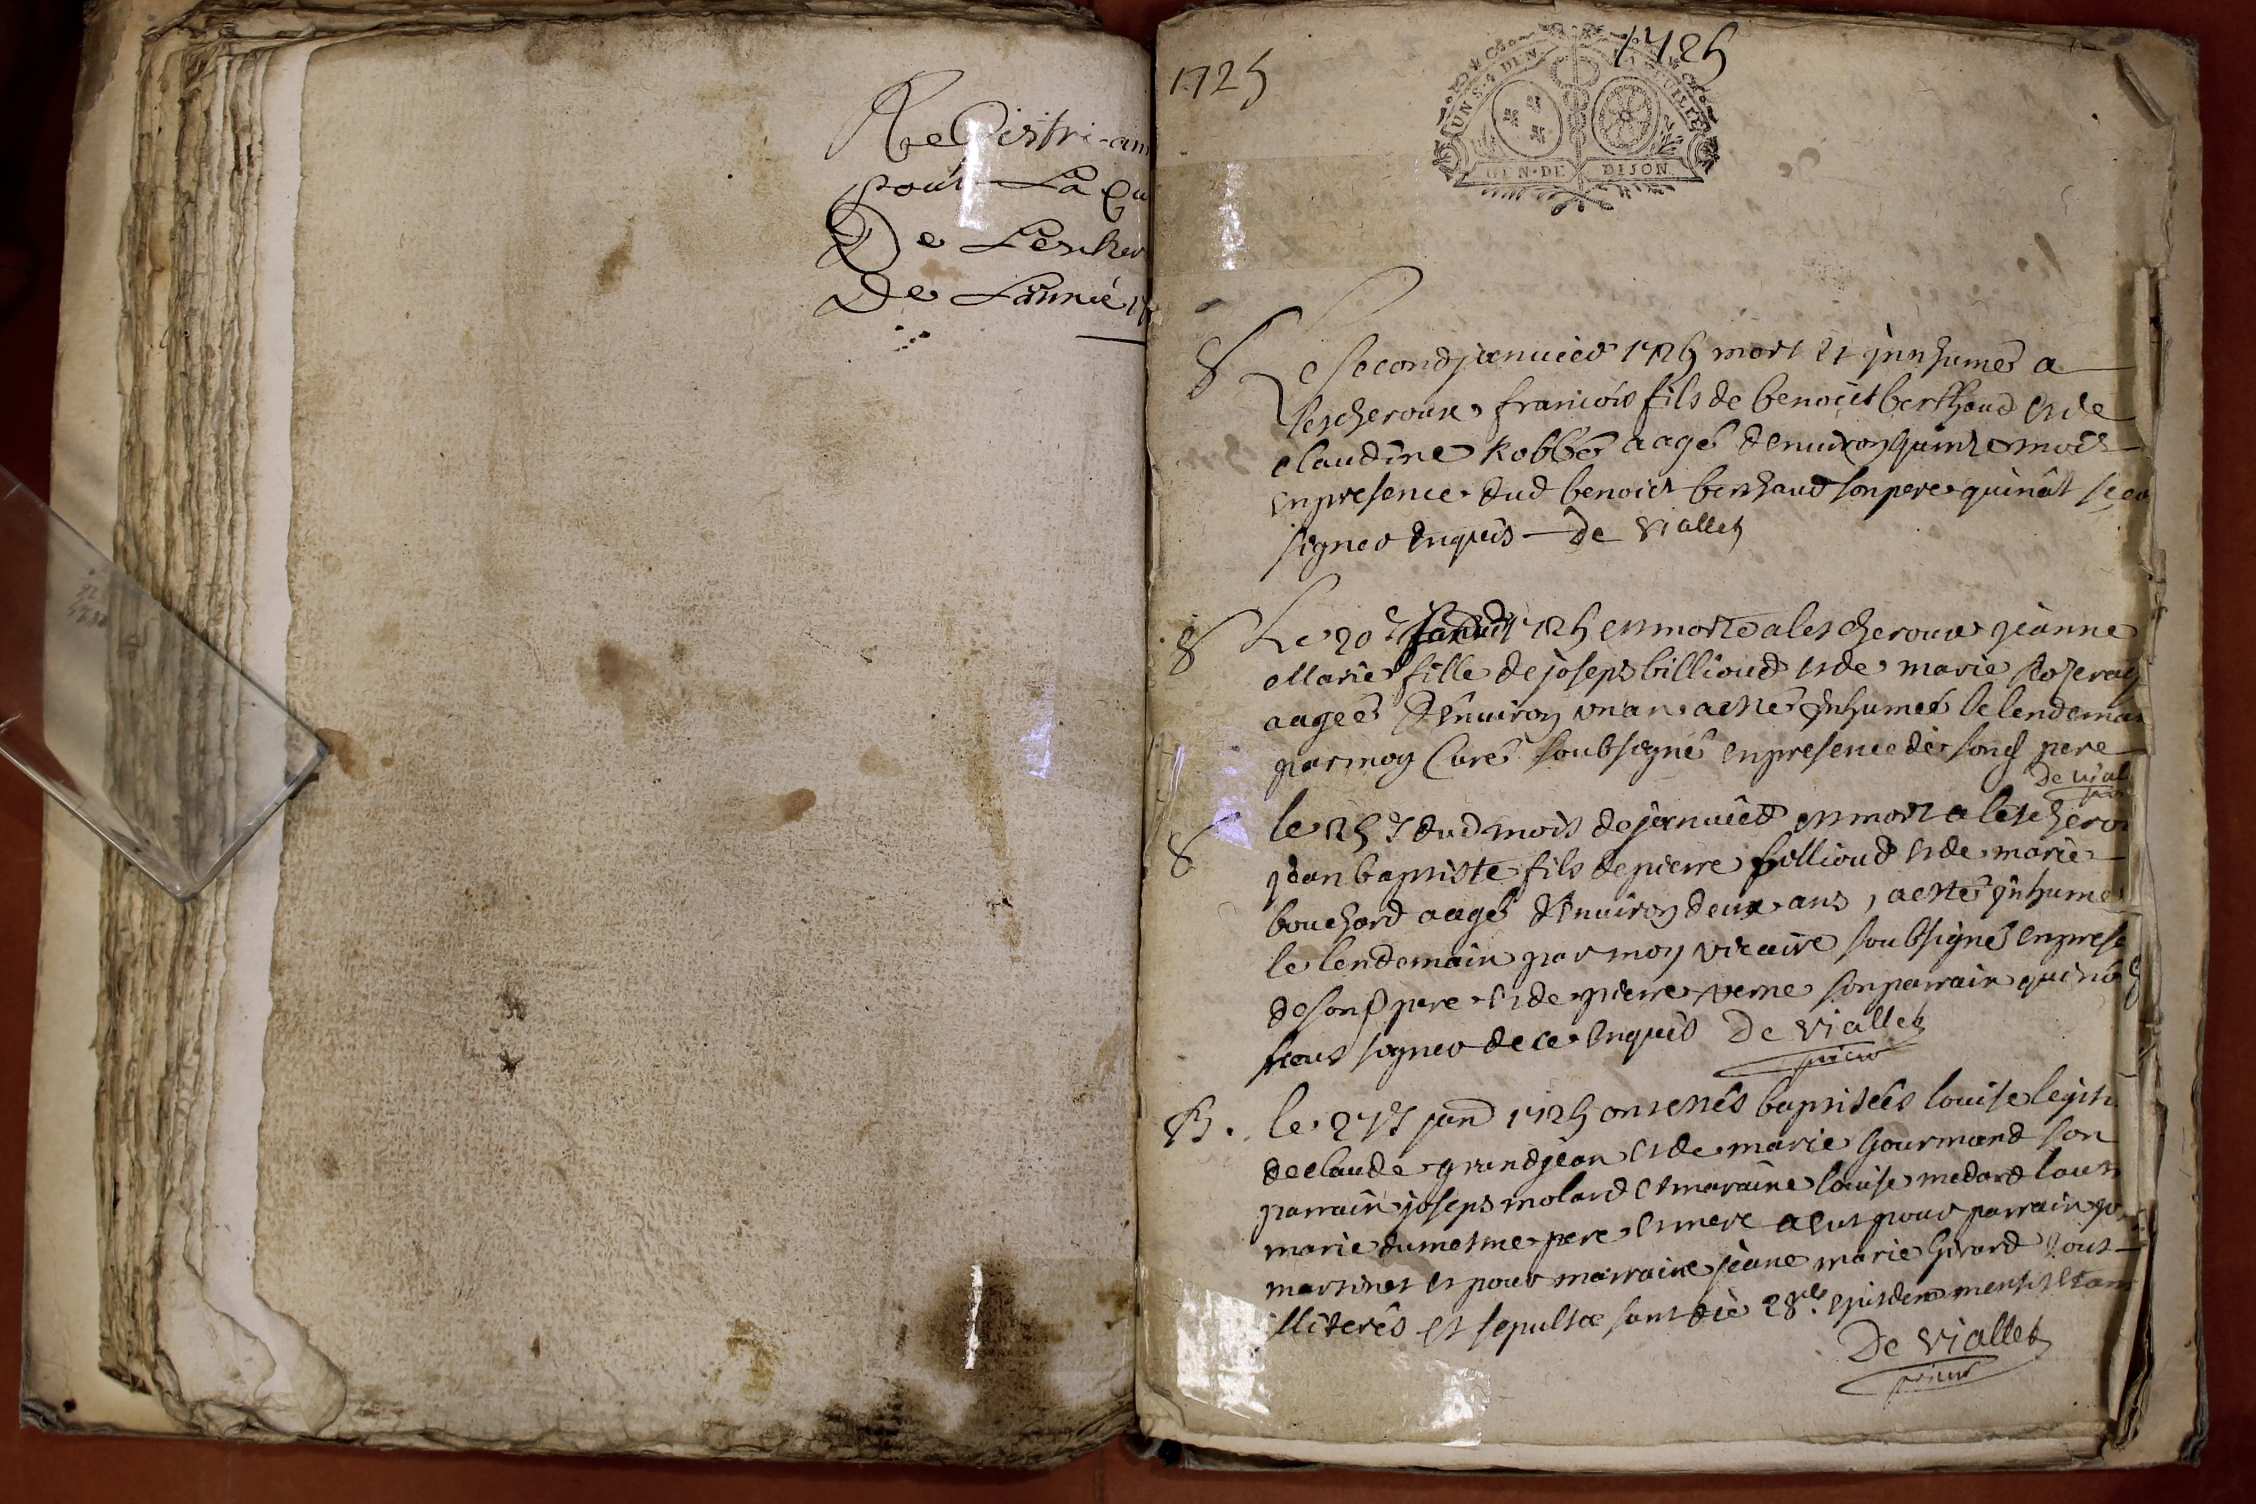 Registre
pour La Cu
De Lescher
De Lannéé 17
1725
1725
UN S. 4 DEN. LA FEUILLE
GEN. DE DIJON
S Le second januier 1725 mort et jnhumé a
lescheroux francois fils de benoict berthoud et de
claudine Robbé aagé denuiron quinze mois
en presence dud benoict berthaud son pere qui nat sceu
signer enquis De Viallet
S Le 20e 1725 est morte a lescheroux jeanne
Marie fille de joseph billioud et de marie
aageé denuiron vn an a esté jnhumeé le lendemain
par moy Curé soubsigné en presence de sond pere
De vial
S le 25e dud mois de januier est mort a lescherou
jean baptiste fils de pierre billioud et de marie
bouchard aagé denuiron deux ans, a esté jnhumé
le lendemain par moy vicaire soubsigné en prese
de sond pere et de pierre verne son parrain qui nō
sceus signer de ce enquis De Viallet
prieur
B. le 27e janv 1725 ont estés baptiseés louise legit
de claude grandjean et de marie gourmand son
parrain joseph molard et maraine louise medard laut
marie du mesme pere et mere a eut pour parrain jo
martinet et pour marraine jeane marie girard tous
illiterés et sepultæ sunt die 28ule ejusdem mensis et an
De Viallet
prieur